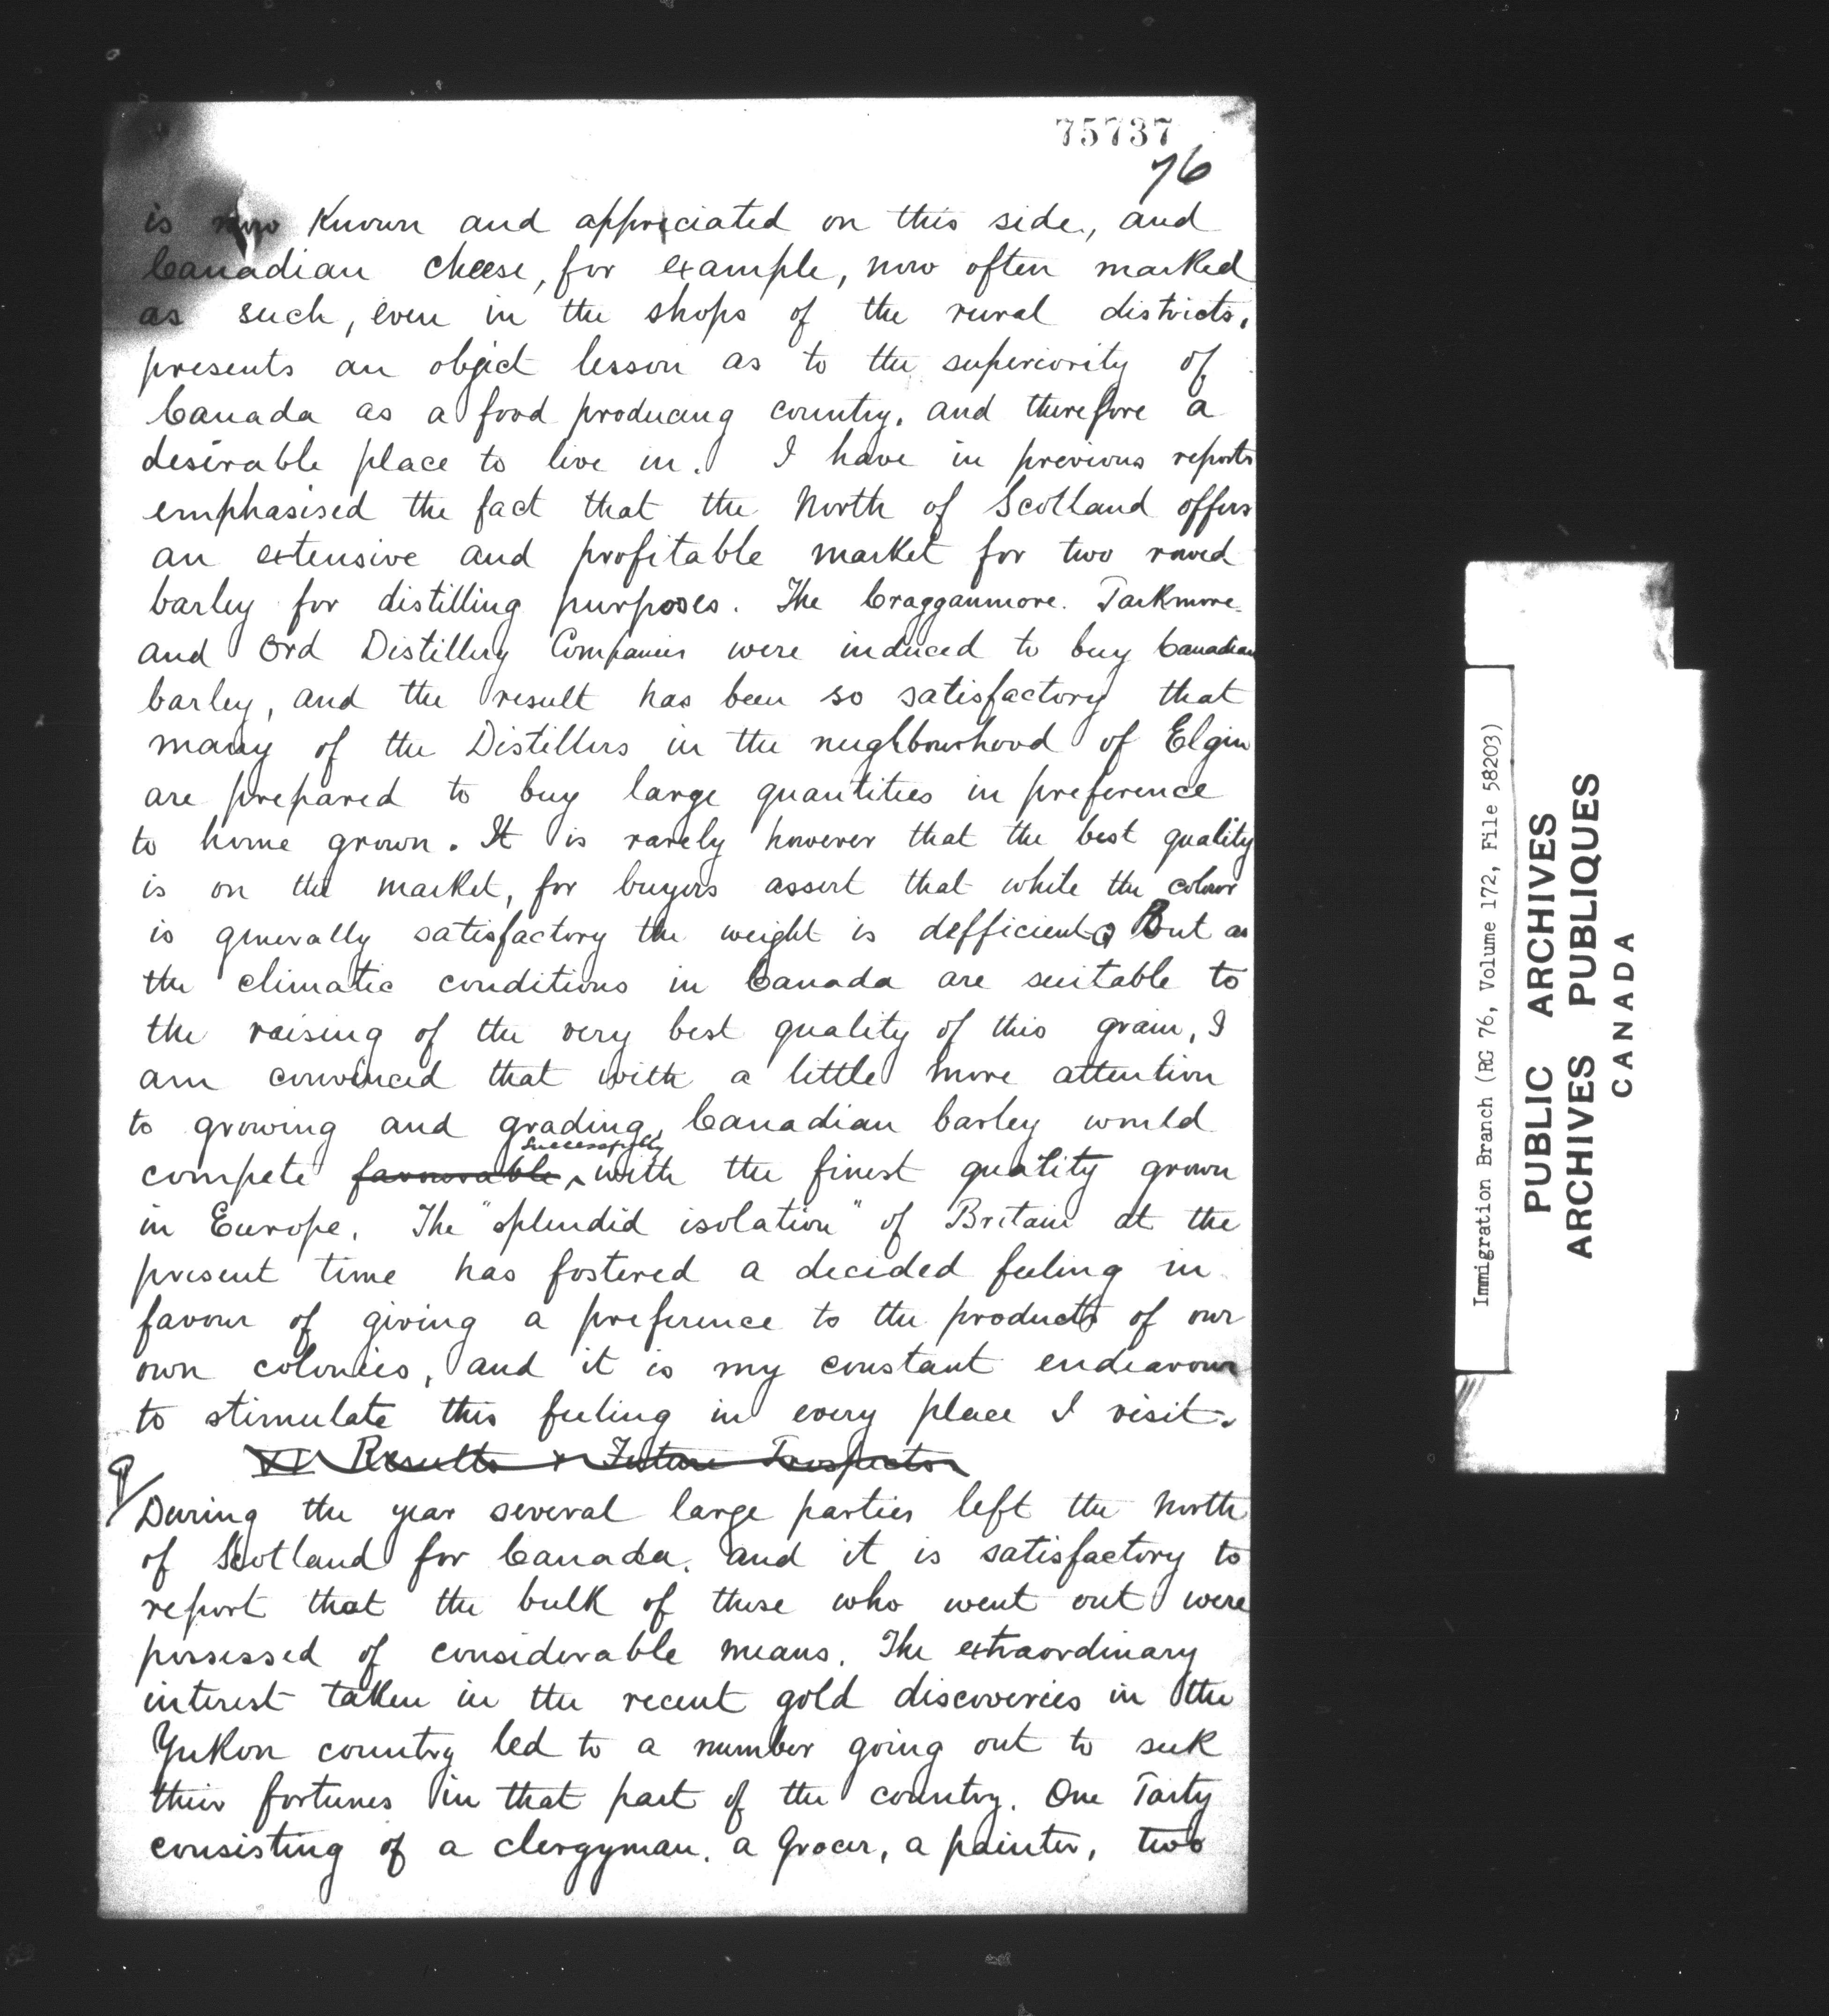 75737
76
is now Known and appreciated on this side, and
Canadian cheese, for example, now often marked
as such, even in the shops of the rural districts,
presents an object lesson as to the superiority of
Canada as a food producing country, and therefore a
desirable place to live in. I have in previous reports
emphasised the fact that the North of Scotland offers
an extensive and profitable market for two rowed
barley for distilling purposes. The Cragganmore. Parkmore
and Ord Distillery Companies were induced to buy Canadian
barley, and the result has been so satisfactory that
many of the Distillers in the neighbourhood of Elgin
are prepared to buy large quantities in preference
to home grown. It is rarely however that the best quality
is on the market, for buyers assert that while the colour
is generally satisfactory the weight is defficient. But as
the climatic conditions in Canada are suitable to
the raising of the very best quality of this grain, I
am convinced that with a little more attention
to growing and grading, Canadian barley would
successfully
compete favourable ^ with the finest quality grown
in Europe. The "splendid isolation" of Britain at the
present time has fostered a decided feeling in
favour of giving a preference to the products of our
own colonies, and it is my constant endeavour
to stimulate this feeling in every place I visit.
VI Results & Future Prospects
During the year several large parties left the North
of Scotland for Canada, and it is satisfactory to
report that the bulk of those who went out were
possessed of considerable means. The extraordinary
interest taken in the recent gold discoveries in the
Yukon country led to a number going out to seek
their fortunes in that part of the country. One Party
consisting of a clergyman, a Grocer, a painter, two
Immigration Branch (RG 76, Volume 172, File 58203)
PUBLIC ARCHIVES
ARCHIVES PUBLIQUES
CANADA